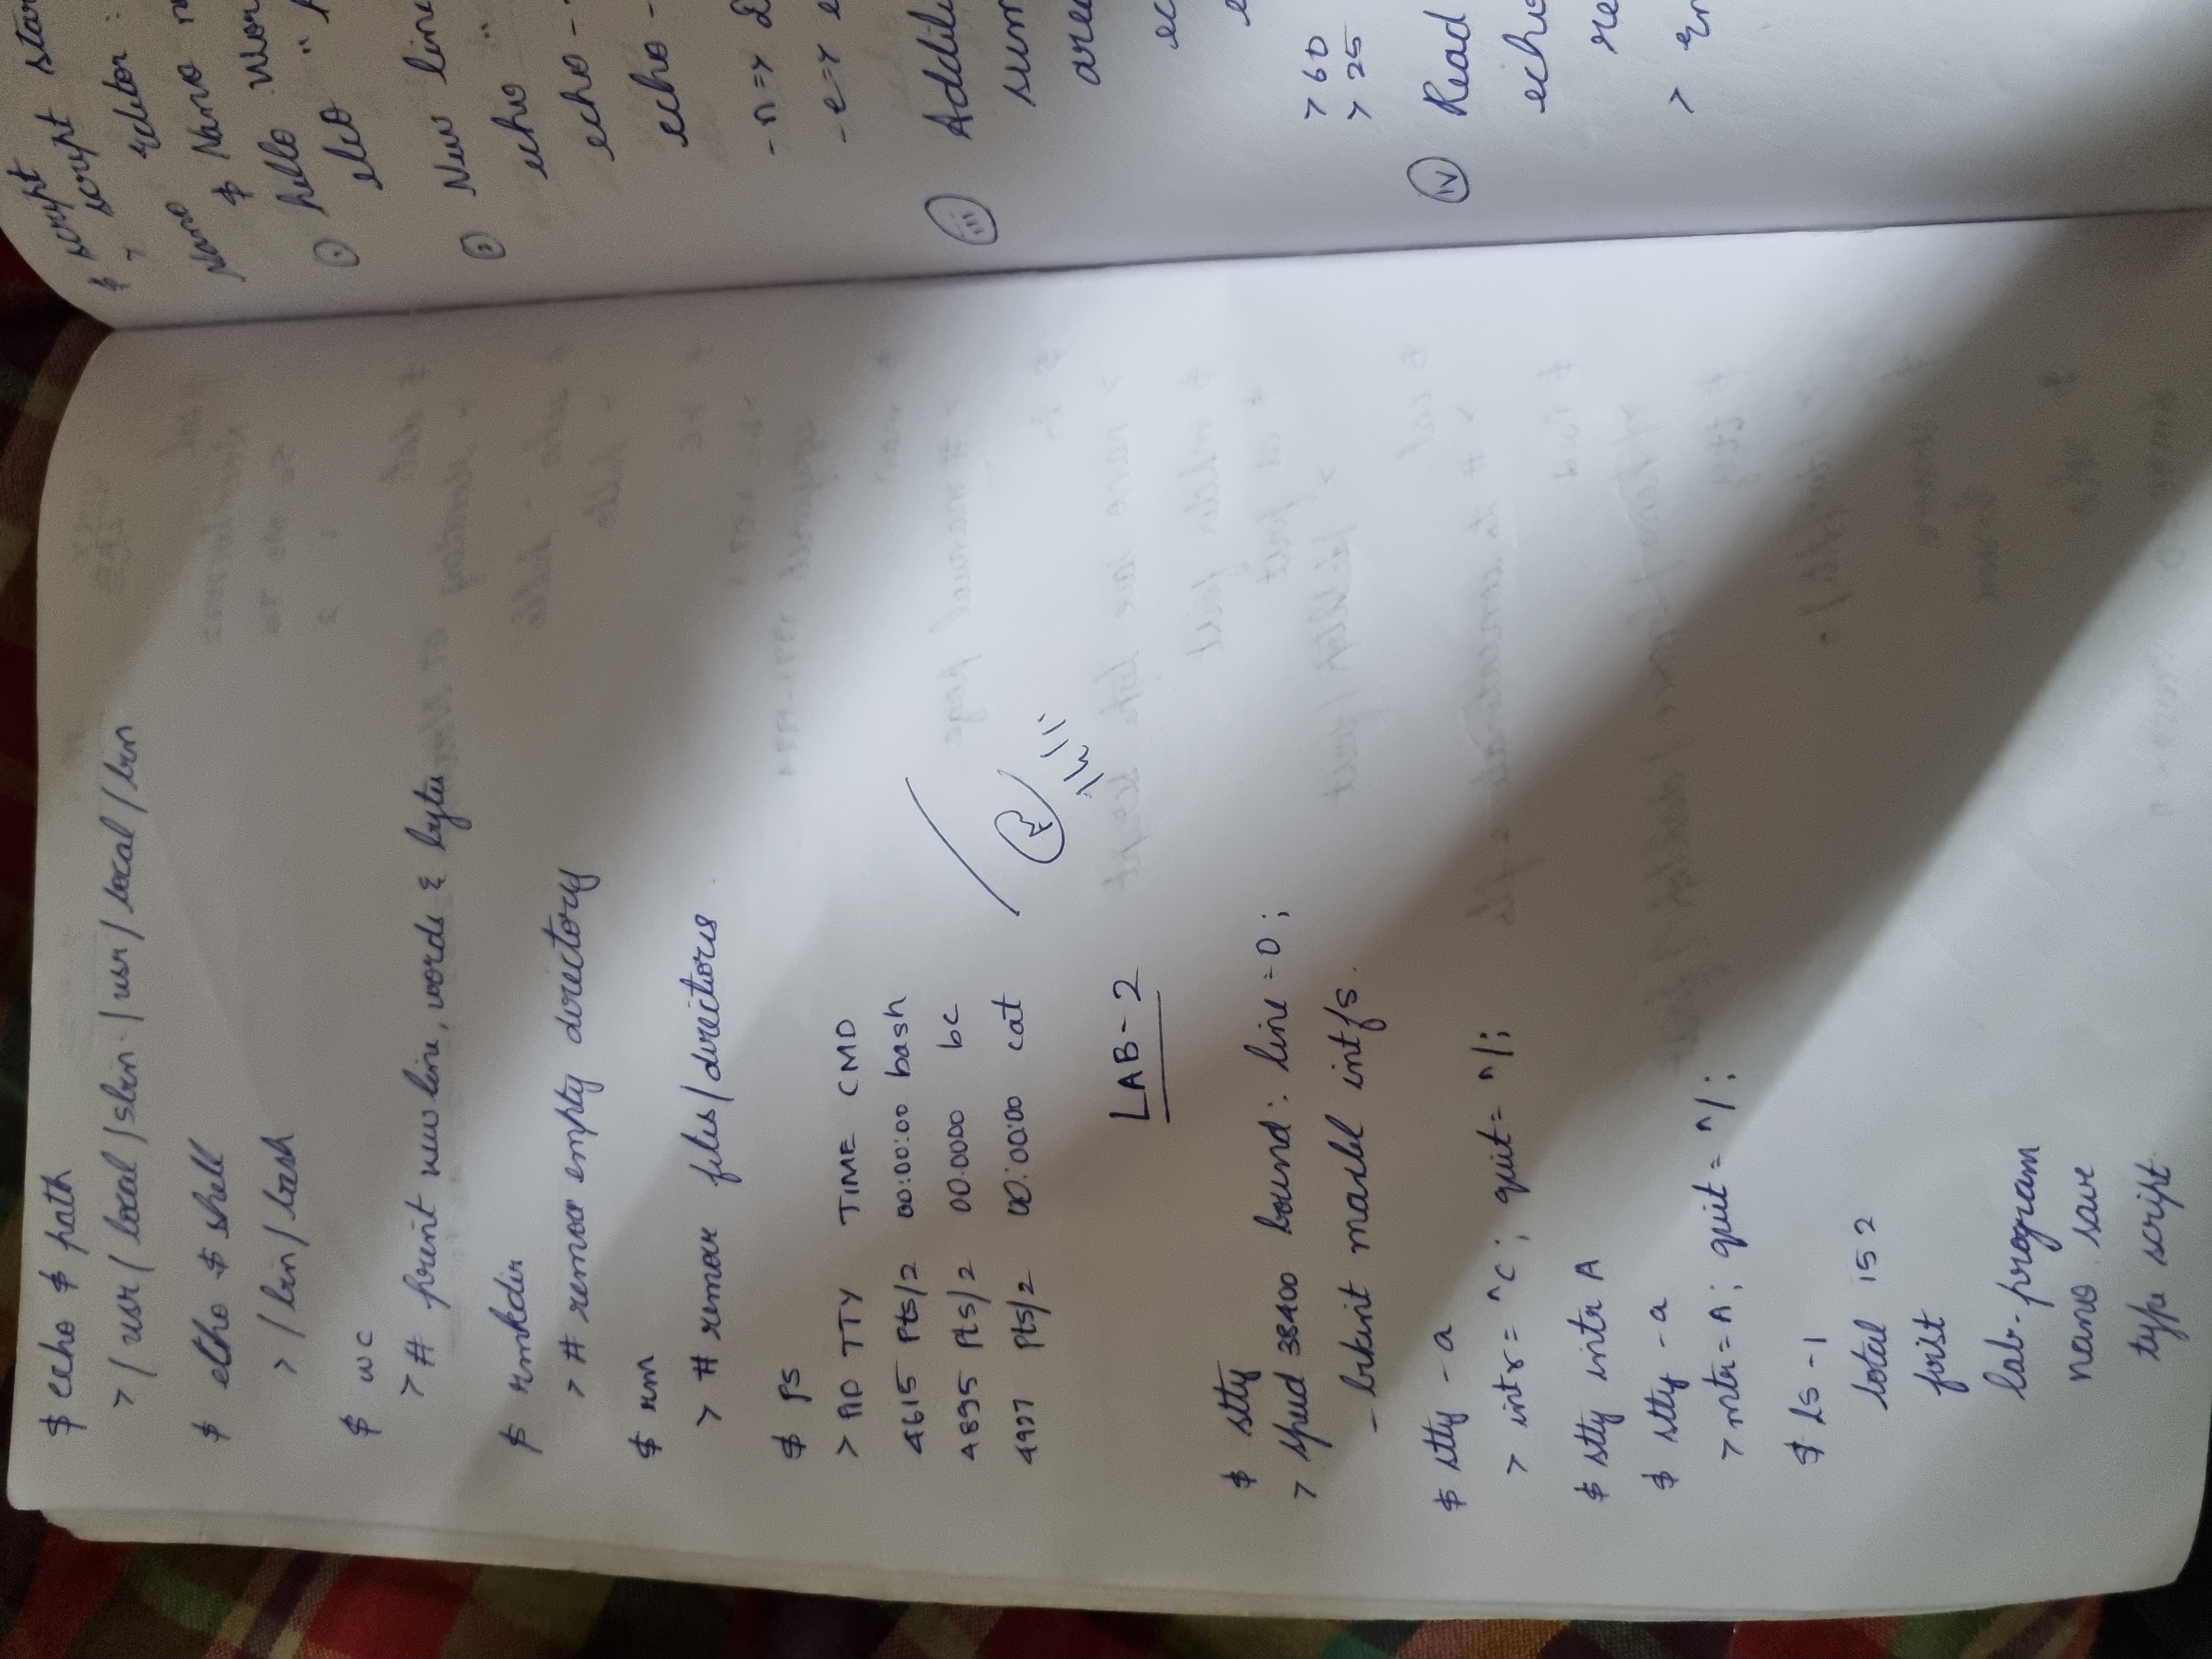 $ echo $ path
> / usr / local / sbin - / usr / local / bin
$ etho $ shell
> / bin / bash
$ wc
> # print new line, words & bytes
$ rmkdir
> # remove empty directory
$ rm
> # remove files/directories
$ ps
> PID TTY TIME CMD
4615 Pts/2 00:00:00 bash
4895 Pts/2 00.0000 bc
4927 Pts/2 00:00:00 cat
14/1
LAB-2
$ stty
> speed 38400 bound: line = 0;
- brkint maxbel intfs.
$ stty - a
> intr = ^C; quit = ^/;
$ stty intr A
$ stty - a
> intr = A; quit = ^/;
$ ls -1
total 152
foist
lab-program
nano save
type script
$ script
> script star
Nano Editor :
$ Nano
① hello Wor
eko "
② New line
echo "
echo -
echo -
- n =>
- e =>
iii Additi
sum
area
ec
> 60
> 25
iv Read
echo
re
> En